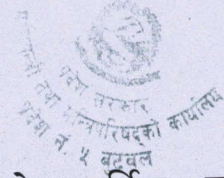 प्रदेश सरकार
तथा मन्त्रिपरिषद्को कार्यालय
प्रदेश नं. ५ बुटवल